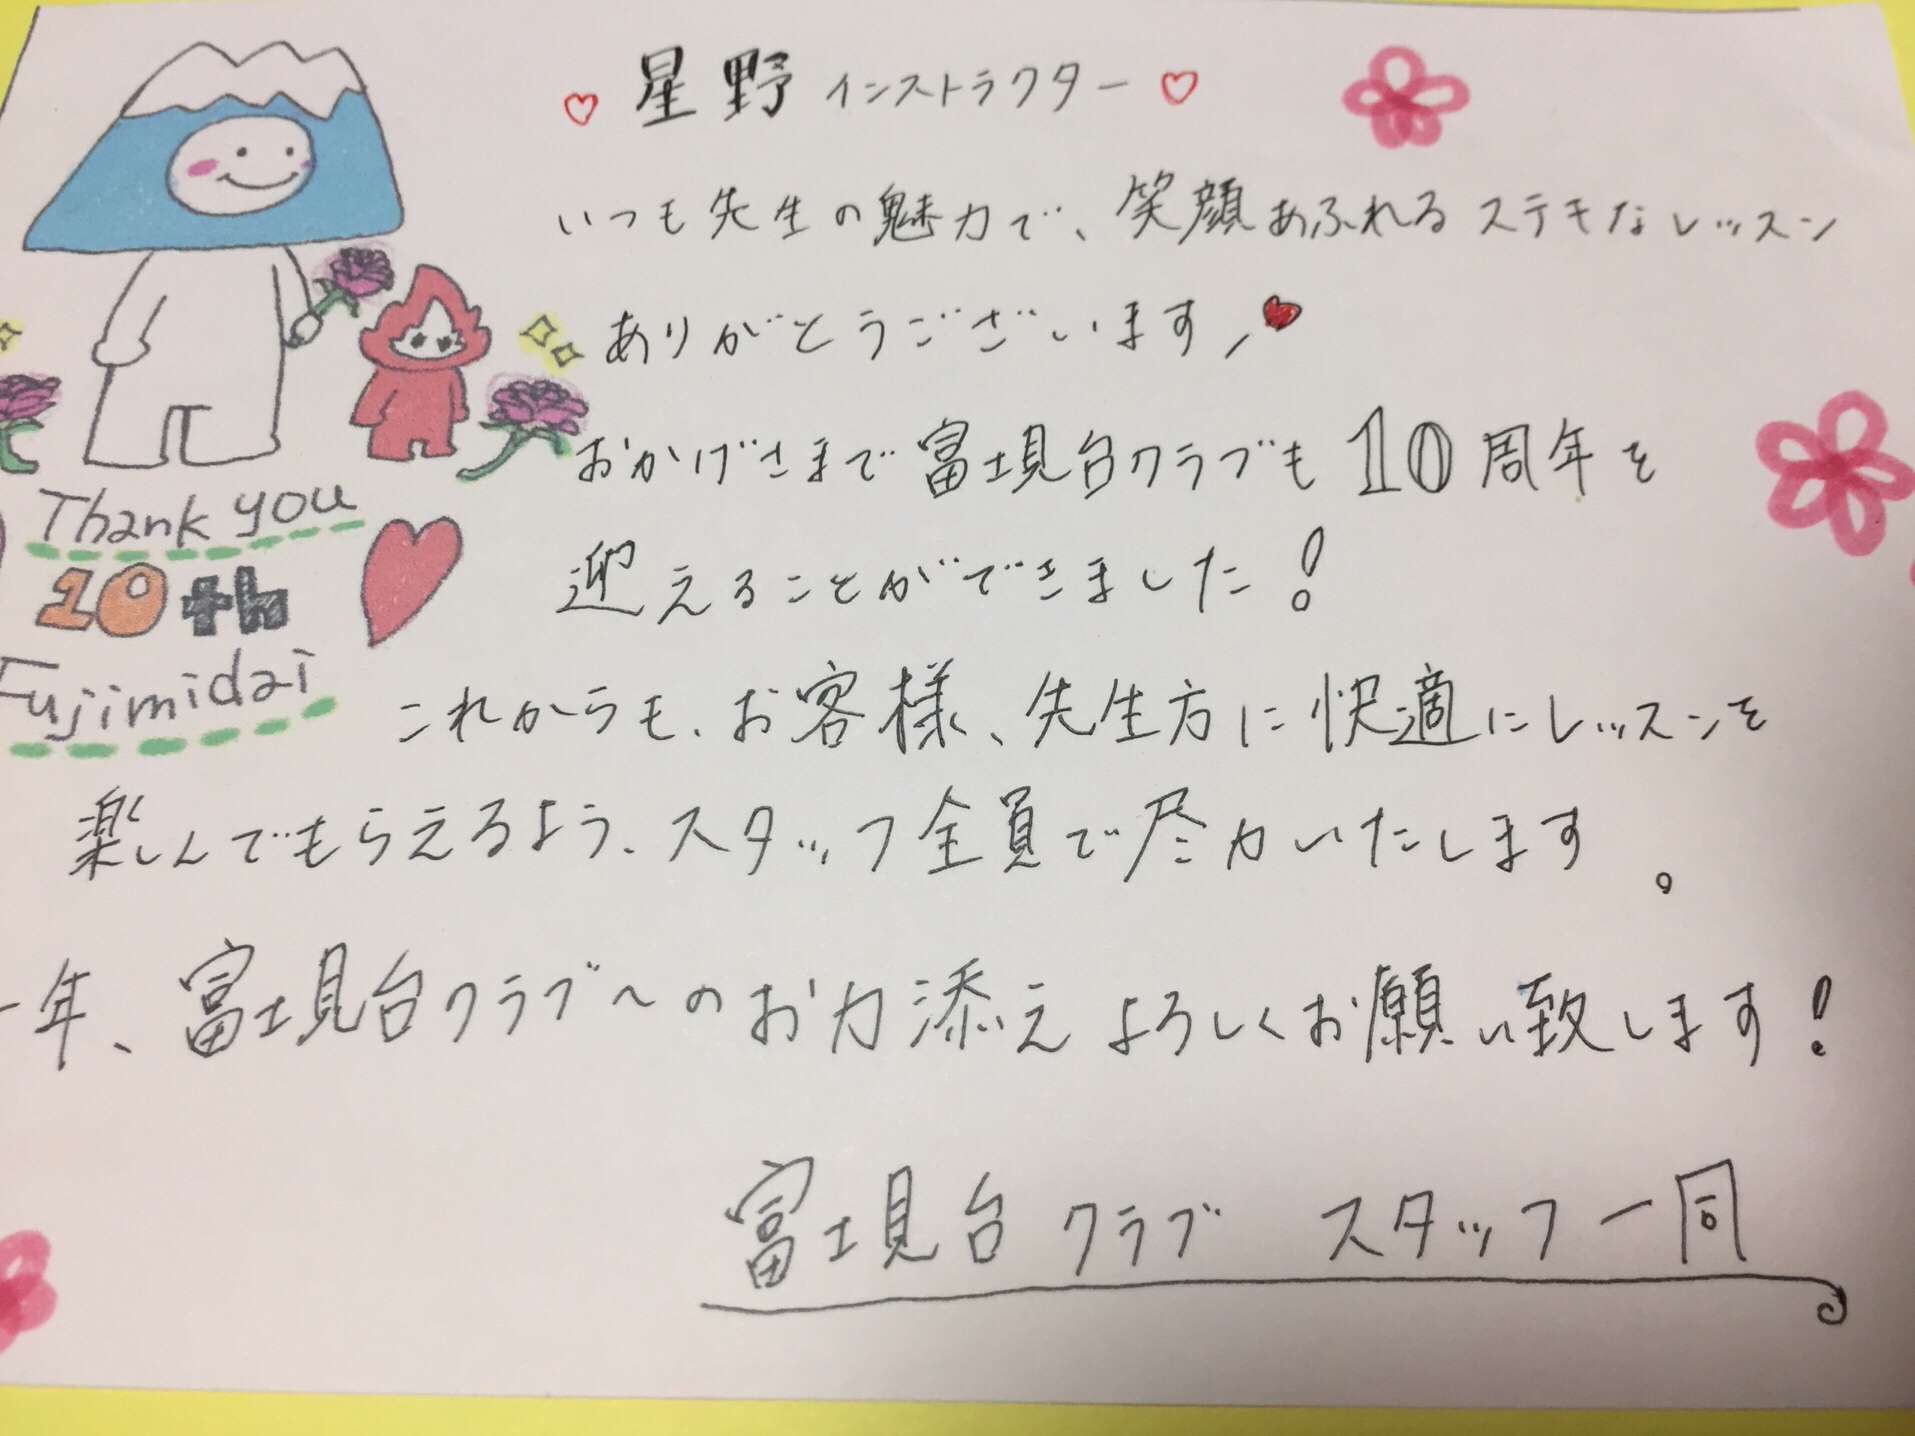 ♡星野インストラクター♡
いつも先生の魅力で、笑顔あふれるステキなレッスン
ありがとうございます♥
おかげさまで富士見台クラブも10周年を
迎えることができました!
Thank you
10th
Fujimidai
これからも、お客様、先生方に快適にレッスンを
楽しんでもらえるよう、スタッフ全員で尽力いたします。
一年、富士見台クラブへのお力添えよろしくお願い致します!
富士見台クラブ スタッフ一同